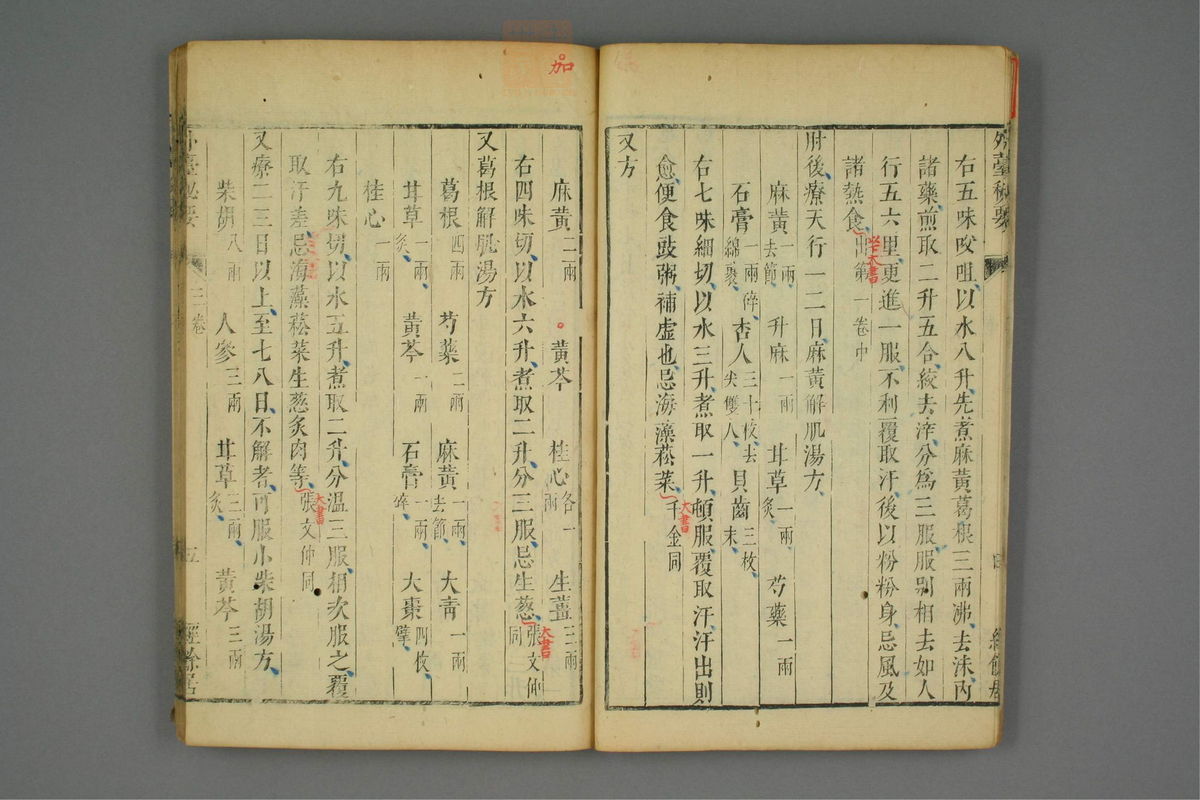 外臺秘要
右五味㕮咀以水八升先煮麻黃葛根三兩沸去沫內
諸藥煎取二升五合絞去滓分爲三服服別相去如人
行五六里更進一服不利覆取汗後以粉粉身忌風及
諸熱食出第一卷中
大書
肘後療天行一二日麻黃解肌湯方
麻黃一兩去節 升麻一兩 甘草一兩炙 芍藥一兩
石膏一兩碎綿裹 杏人三十枚去尖雙人 貝齒三枚末
右七味細切以水三升煮取一升頓服覆取汗汗出則
愈便食豉粥補虛也忌海藻菘菜千金同
大書
又方
加
麻黃二兩 黃芩 桂心各一兩 生薑三兩
右四味切以水六升煮取二升分三服忌生蔥張文仲同
大書
又葛根解肌湯方
葛根四兩 芍藥二兩 麻黃一兩去節 大青一兩
甘草一兩炙 黃芩一兩 石膏一兩碎 大棗四枚擘
桂心一兩
右九味切以水五升煮取二升分温三服相次服之覆
取汗差忌海藻菘菜生蔥炙肉等張文仲同
大書
又療二三日以上至七八日不解者可服小柴胡湯方
柴胡八兩 人參三兩 甘草三兩炙 黃芩三兩
外臺秘要 三卷 五 經餘居